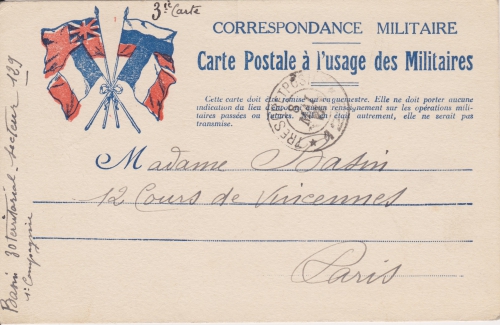 3è Carte
CORRESPONDANCE MILITAIRE
Carte Postale à l'usage des Militaires
Cette carte doit être remise au vaguemestre. Elle ne doit porter aucune
indication du lieu d'envoi ni aucun renseignement sur les opérations mili-
taires passées ou futures. S'il en était autrement, elle ne serait pas
transmise.
TRESOR ET POSTES
Madame Basin
12 Cours de Vincennes
Paris
Basin 30 territorial - secteur 189
1e Compagnie